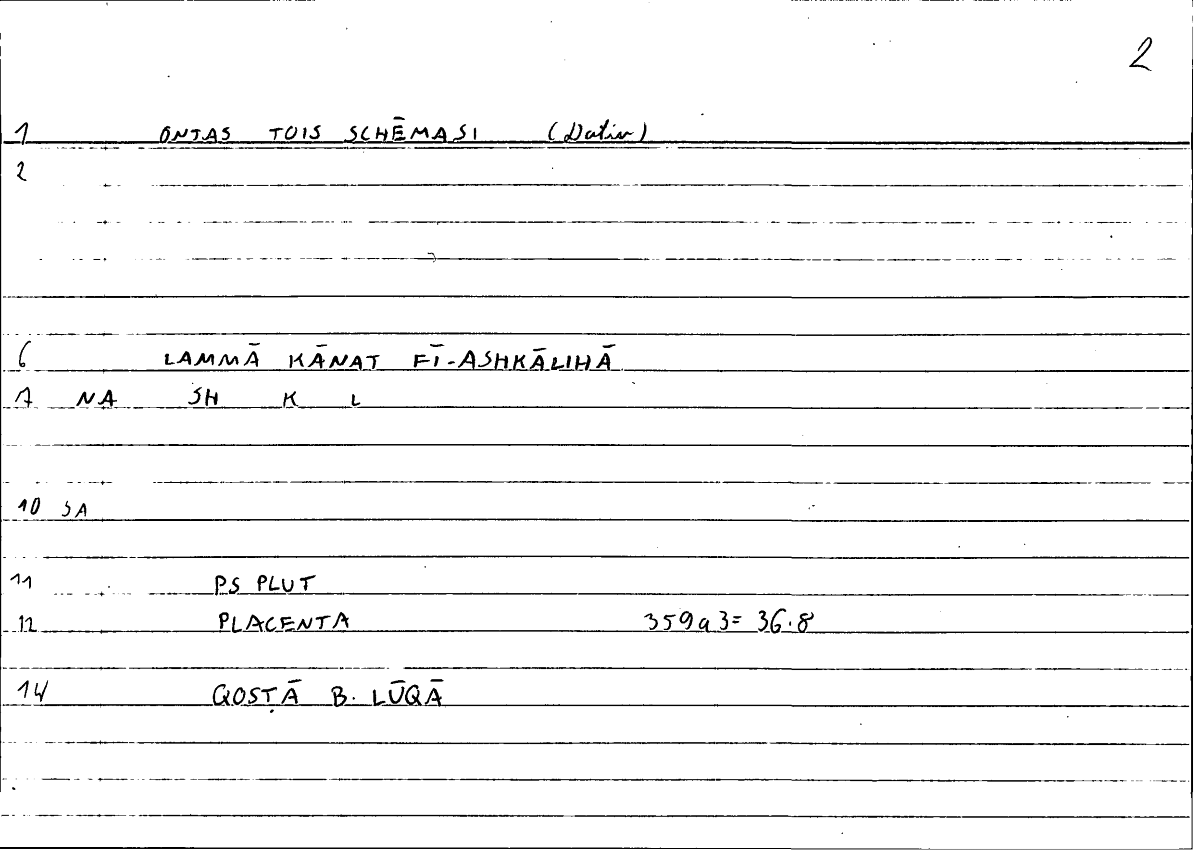 2
1 ONTAS TOIS SCHĒMASI (Dativ)
2
6 LAMMĀ KĀNAT FĪ-ASHKĀLIHĀ
7 NA SH K L
10 SA
11 PS PLUT
12 PLACENTA 359a3= 36.8
14 QOSṬĀ B. LŪQĀ